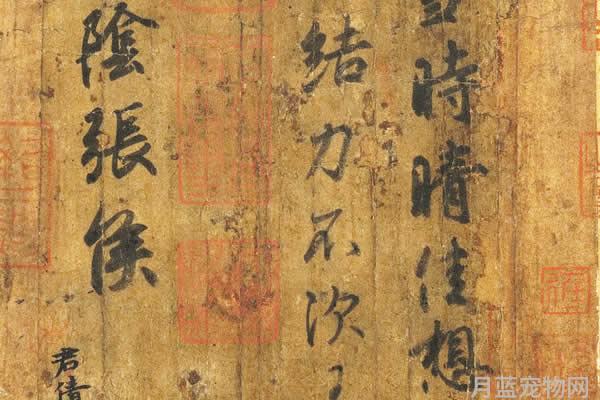 時晴佳想
結力不次
陰張侯
君倩
月蓝宠物网